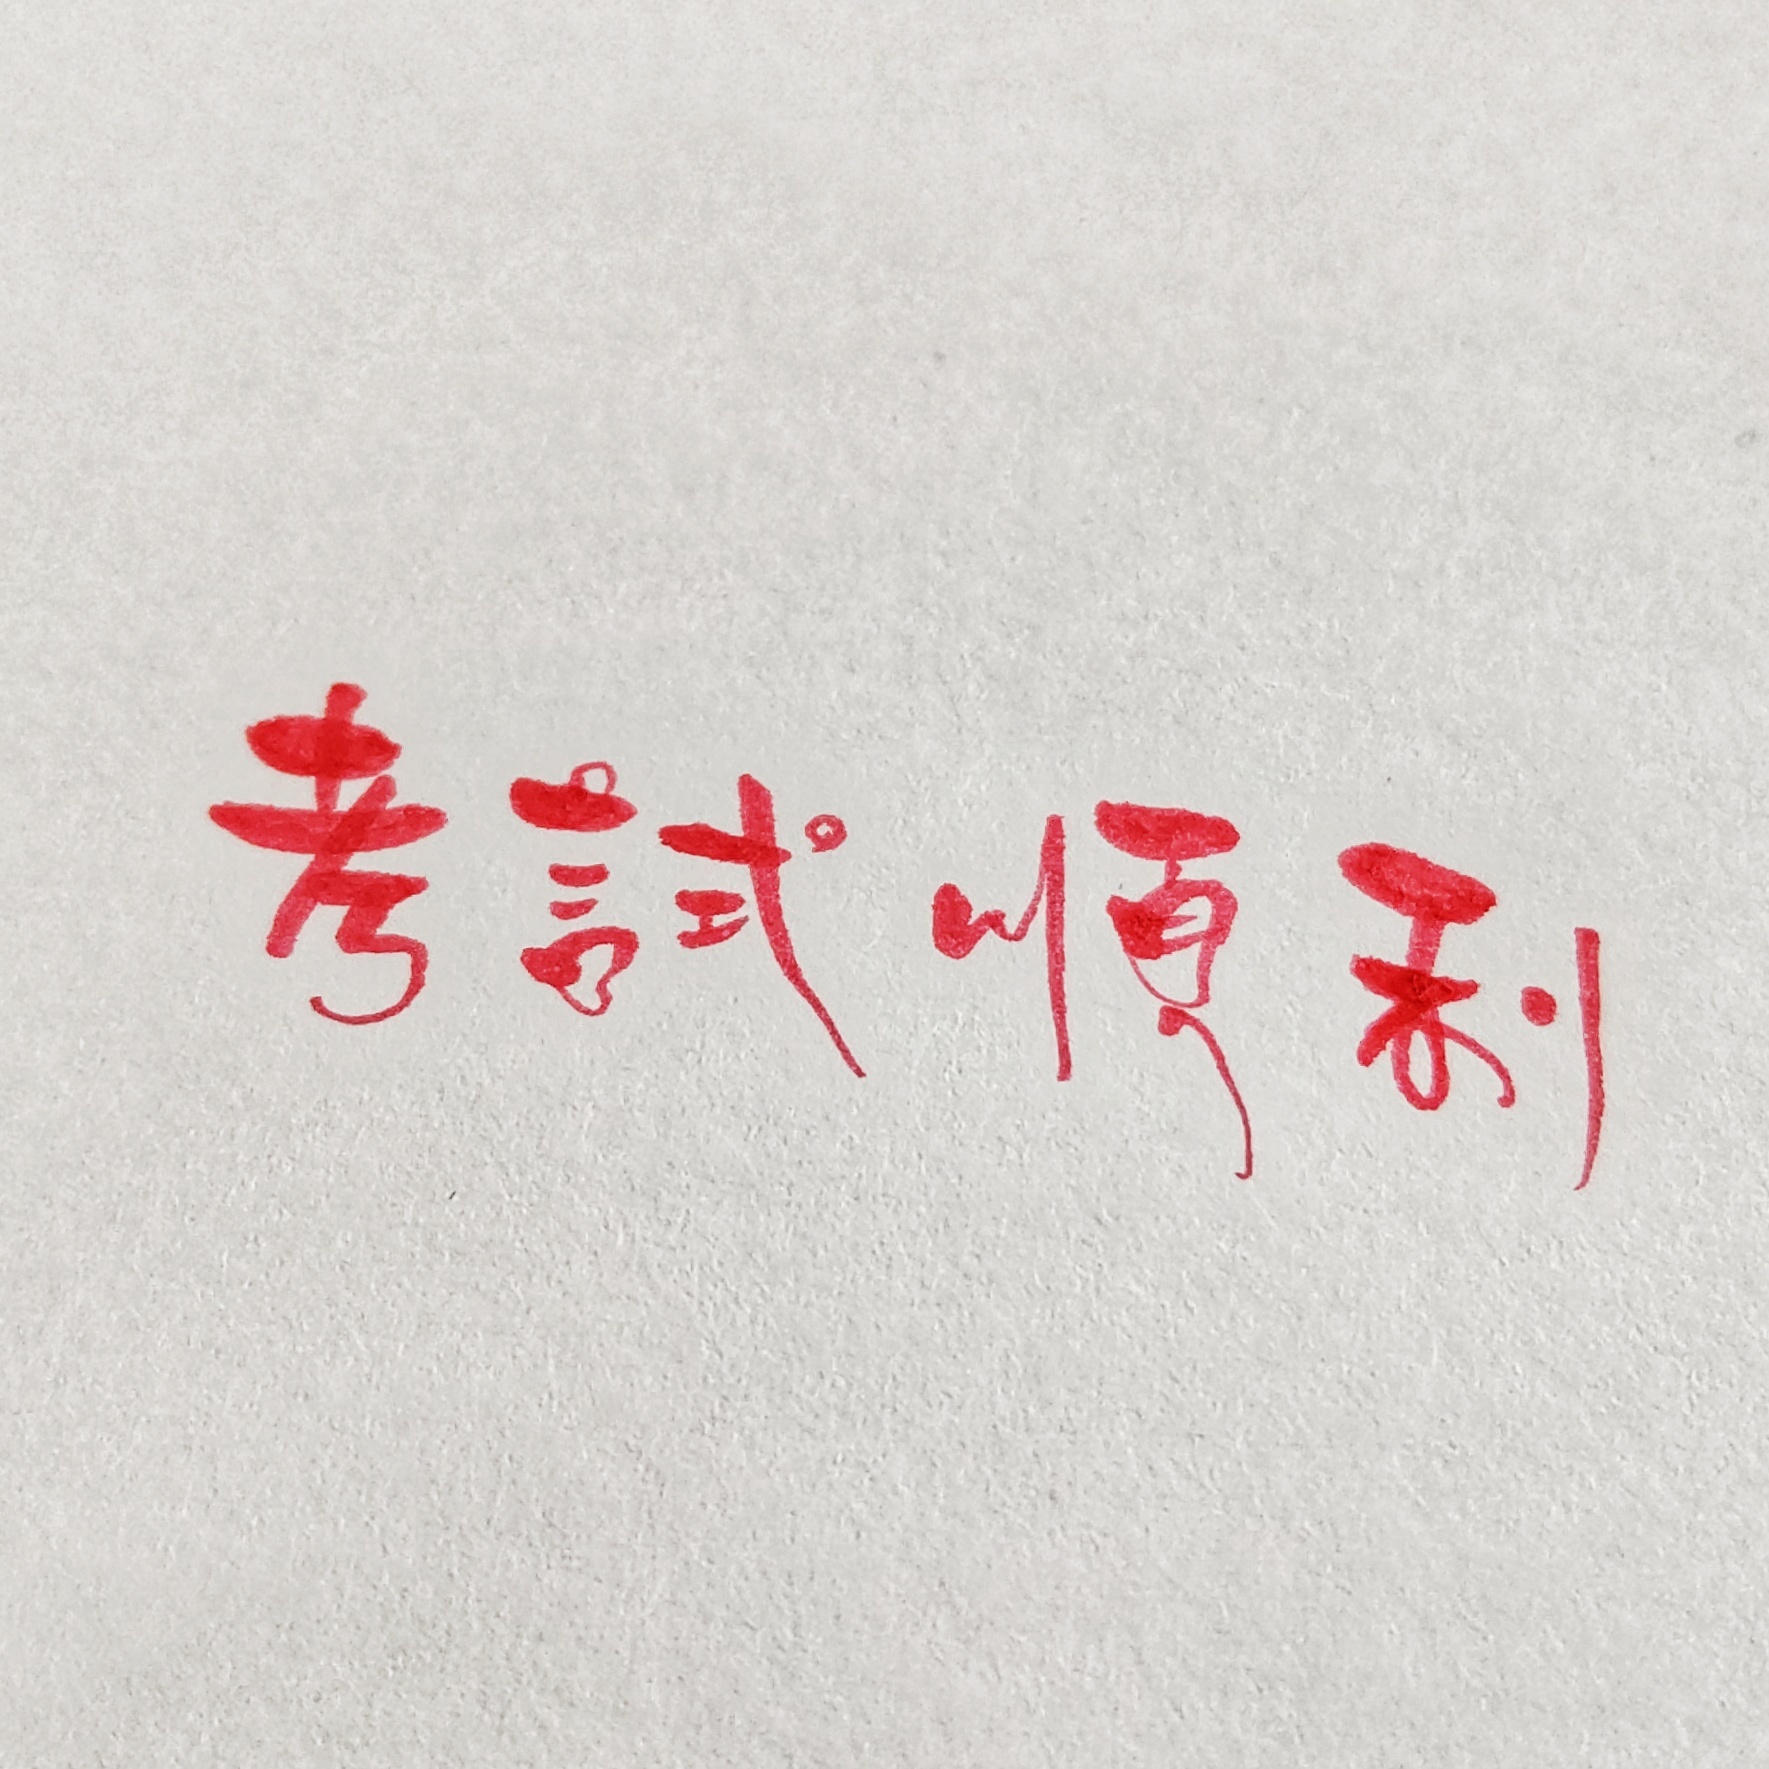 考試順利